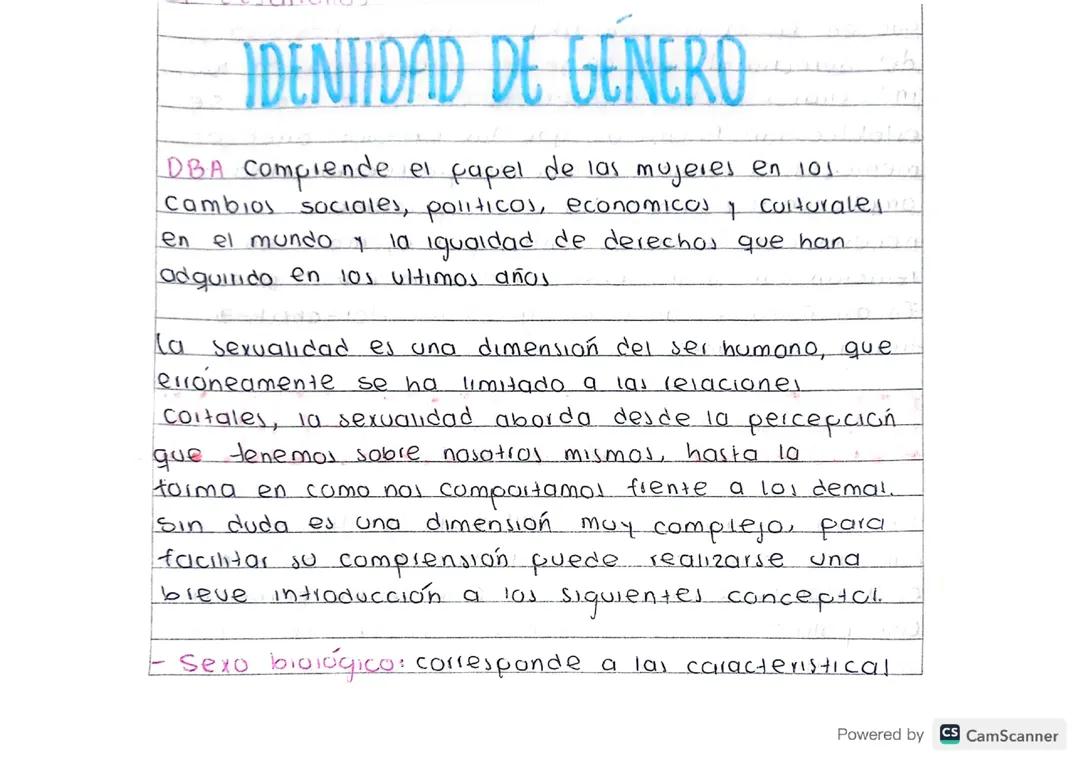 IDENTIDAD DE GÉNERO
DBA Comprende el papel de las mujeres en los
cambios sociales, politicos, economicos y culturales
en el mundo y la igualdad de derechos que han
adquirido en los ultimos años
La sexualidad es una dimensión del ser humano, que
erróneamente se ha limitado a las relaciones
coitales, la sexualidad aborda desde la percepción
que tenemos sobre nosotros mismos, hasta la
forma en como nos comportamos frente a los demas.
Sin duda es una dimensión muy compleja, para
facilitar su comprensión puede realizarse una
breve introducción a los siguientes conceptos.
- Sexo biológico: corresponde a las caracteristicas
Powered by CS CamScanner